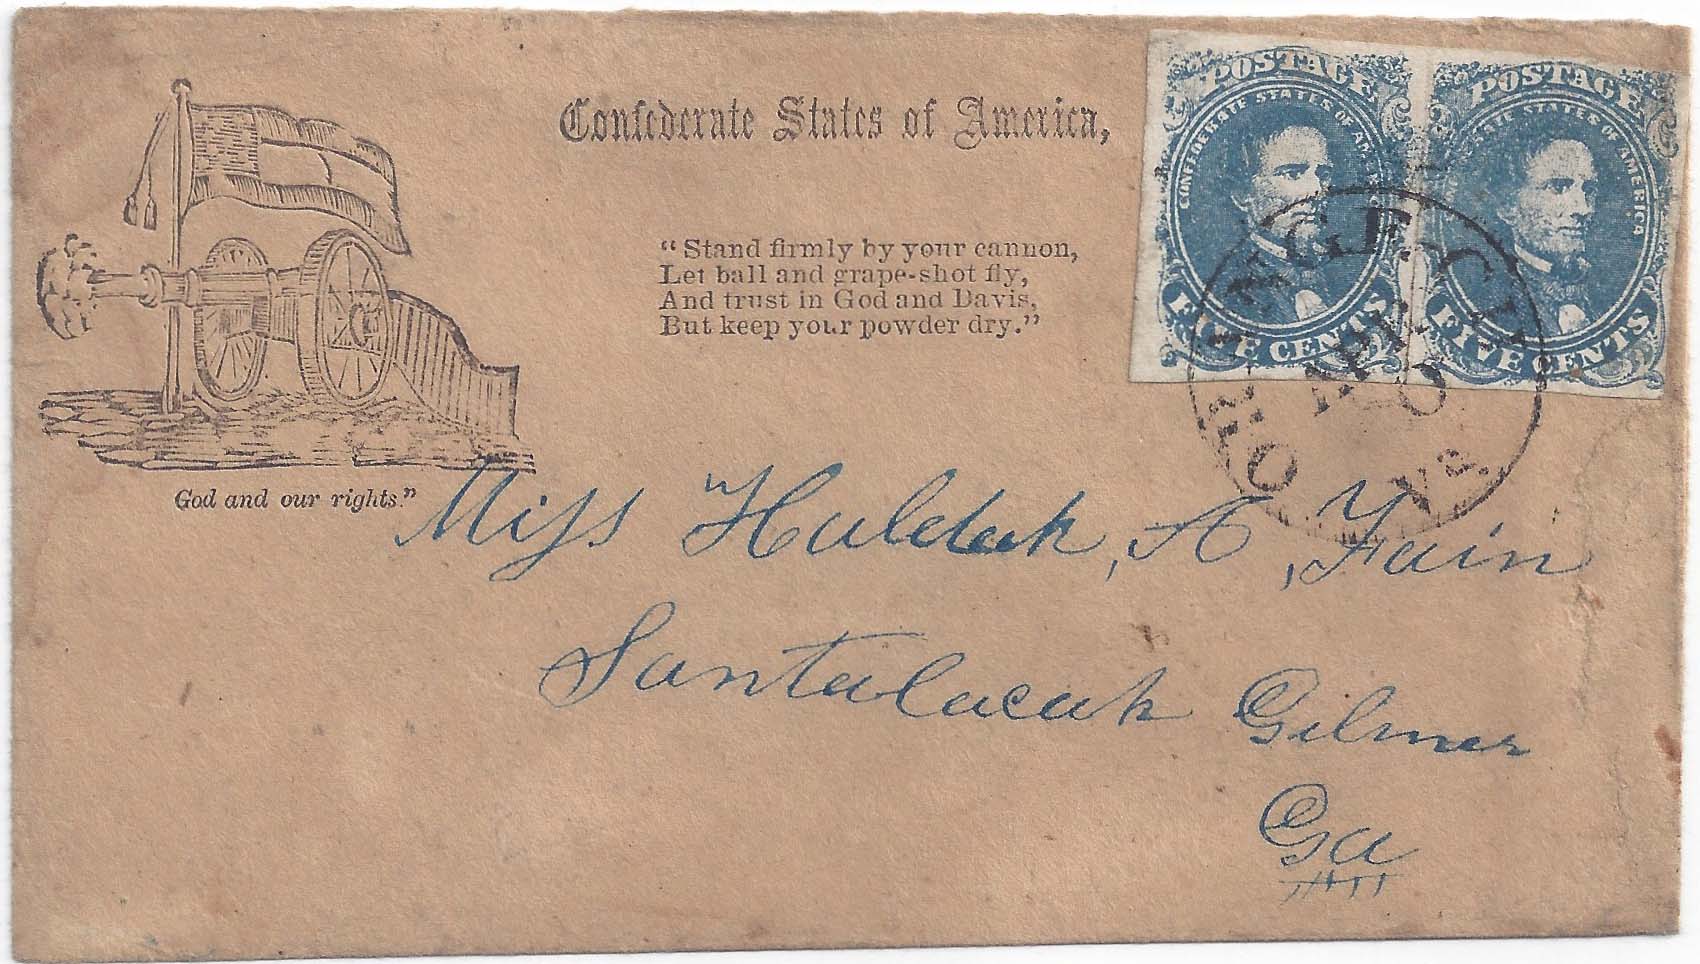 Confederate States of America,
POSTAGE
CONFEDERATE STATES OF AMERICA
FIVE CENTS
POSTAGE
CONFEDERATE STATES OF AMERICA
FIVE CENTS
"Stand firmly by your cannon,
Let ball and grape-shot fly,
And trust in God and Davis,
But keep your powder dry."
ORANGE C.H.
APR
Va
God and our rights."
Miss Huldah, A, Fain
Santalucah Gilmer
Ga